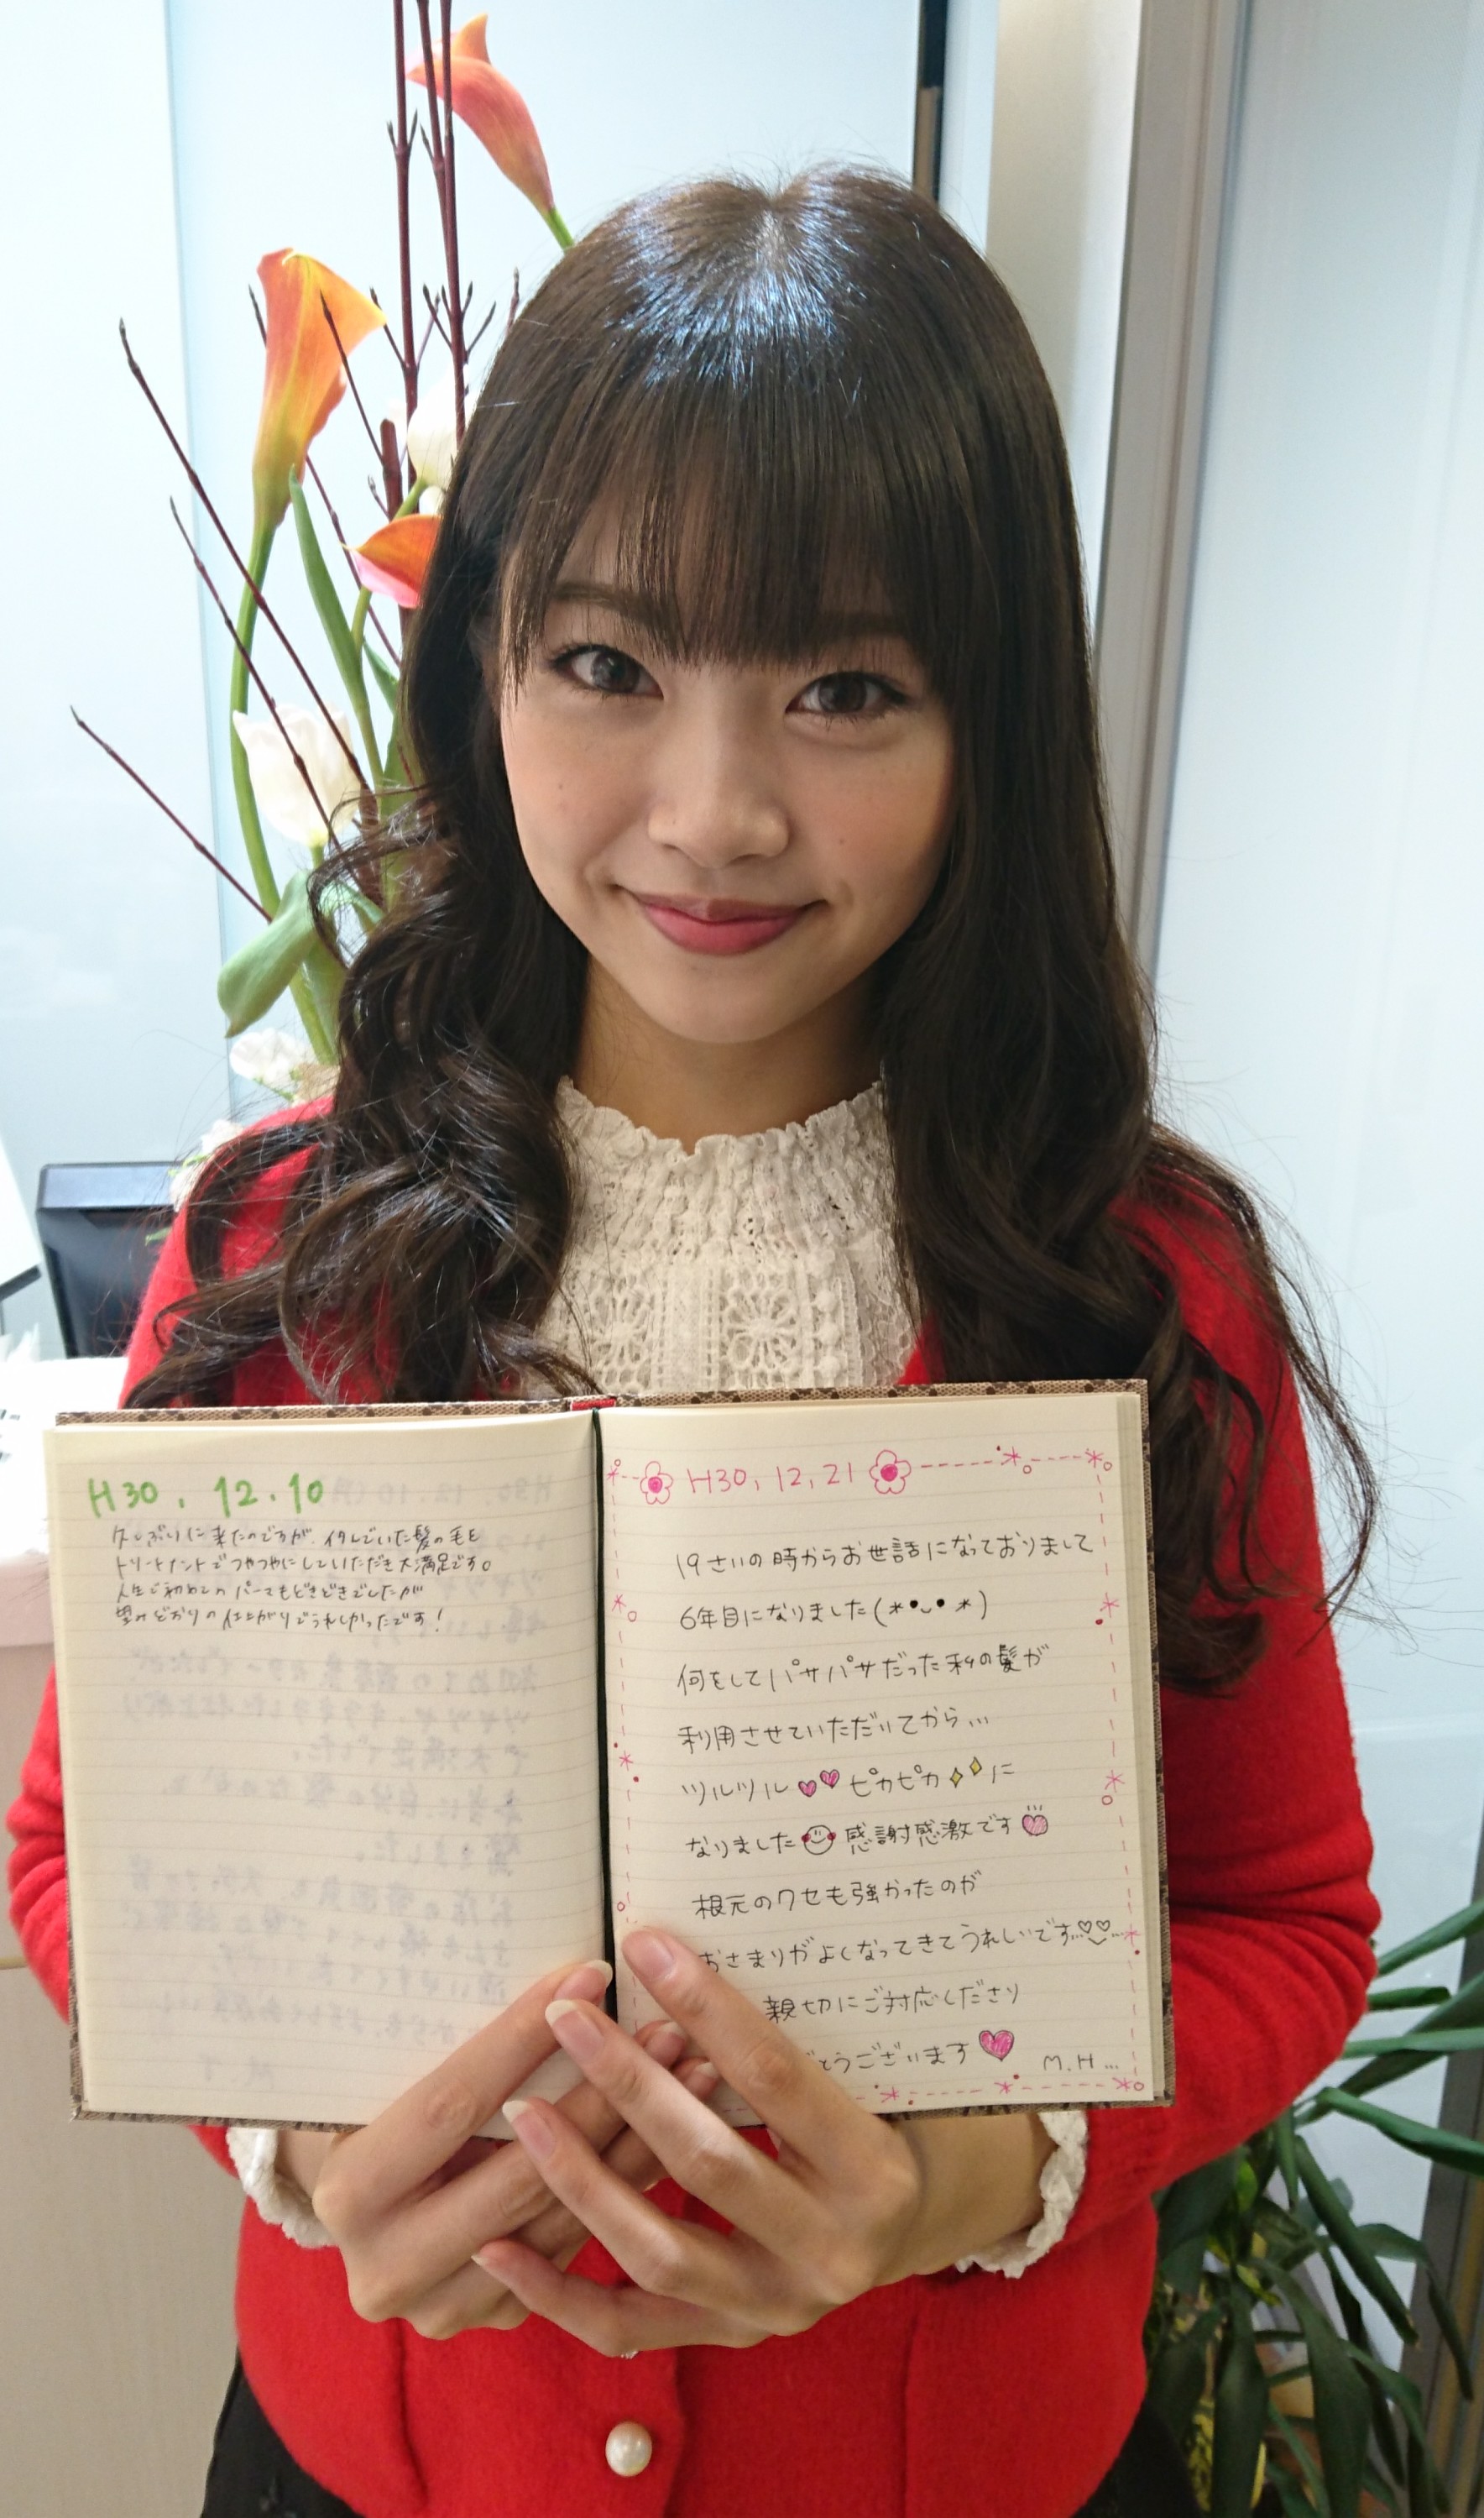 H30. 12.10
久しぶりに来たのですが、イタんでいた髪の毛を
トリートメントでつやつやにしていただき大満足です。
人生で初めてのパーマもどきどきでしたが
望みどおりの仕上がりでうれしかったです!
H30, 12, 21
19さいの時からお世話になっておりまして
6年目になりました(*•ᴗ•*)
何をしてパサパサだった私の髪が
利用させていただいてから…
ツルツル♥♥ピカピカ✧✧に
なりました 感謝感激です
根元のクセも強かったのが
おさまりがよくなってきてうれしいです…♡♡…
親切にご対応くださり
とうございます♥ M.H…